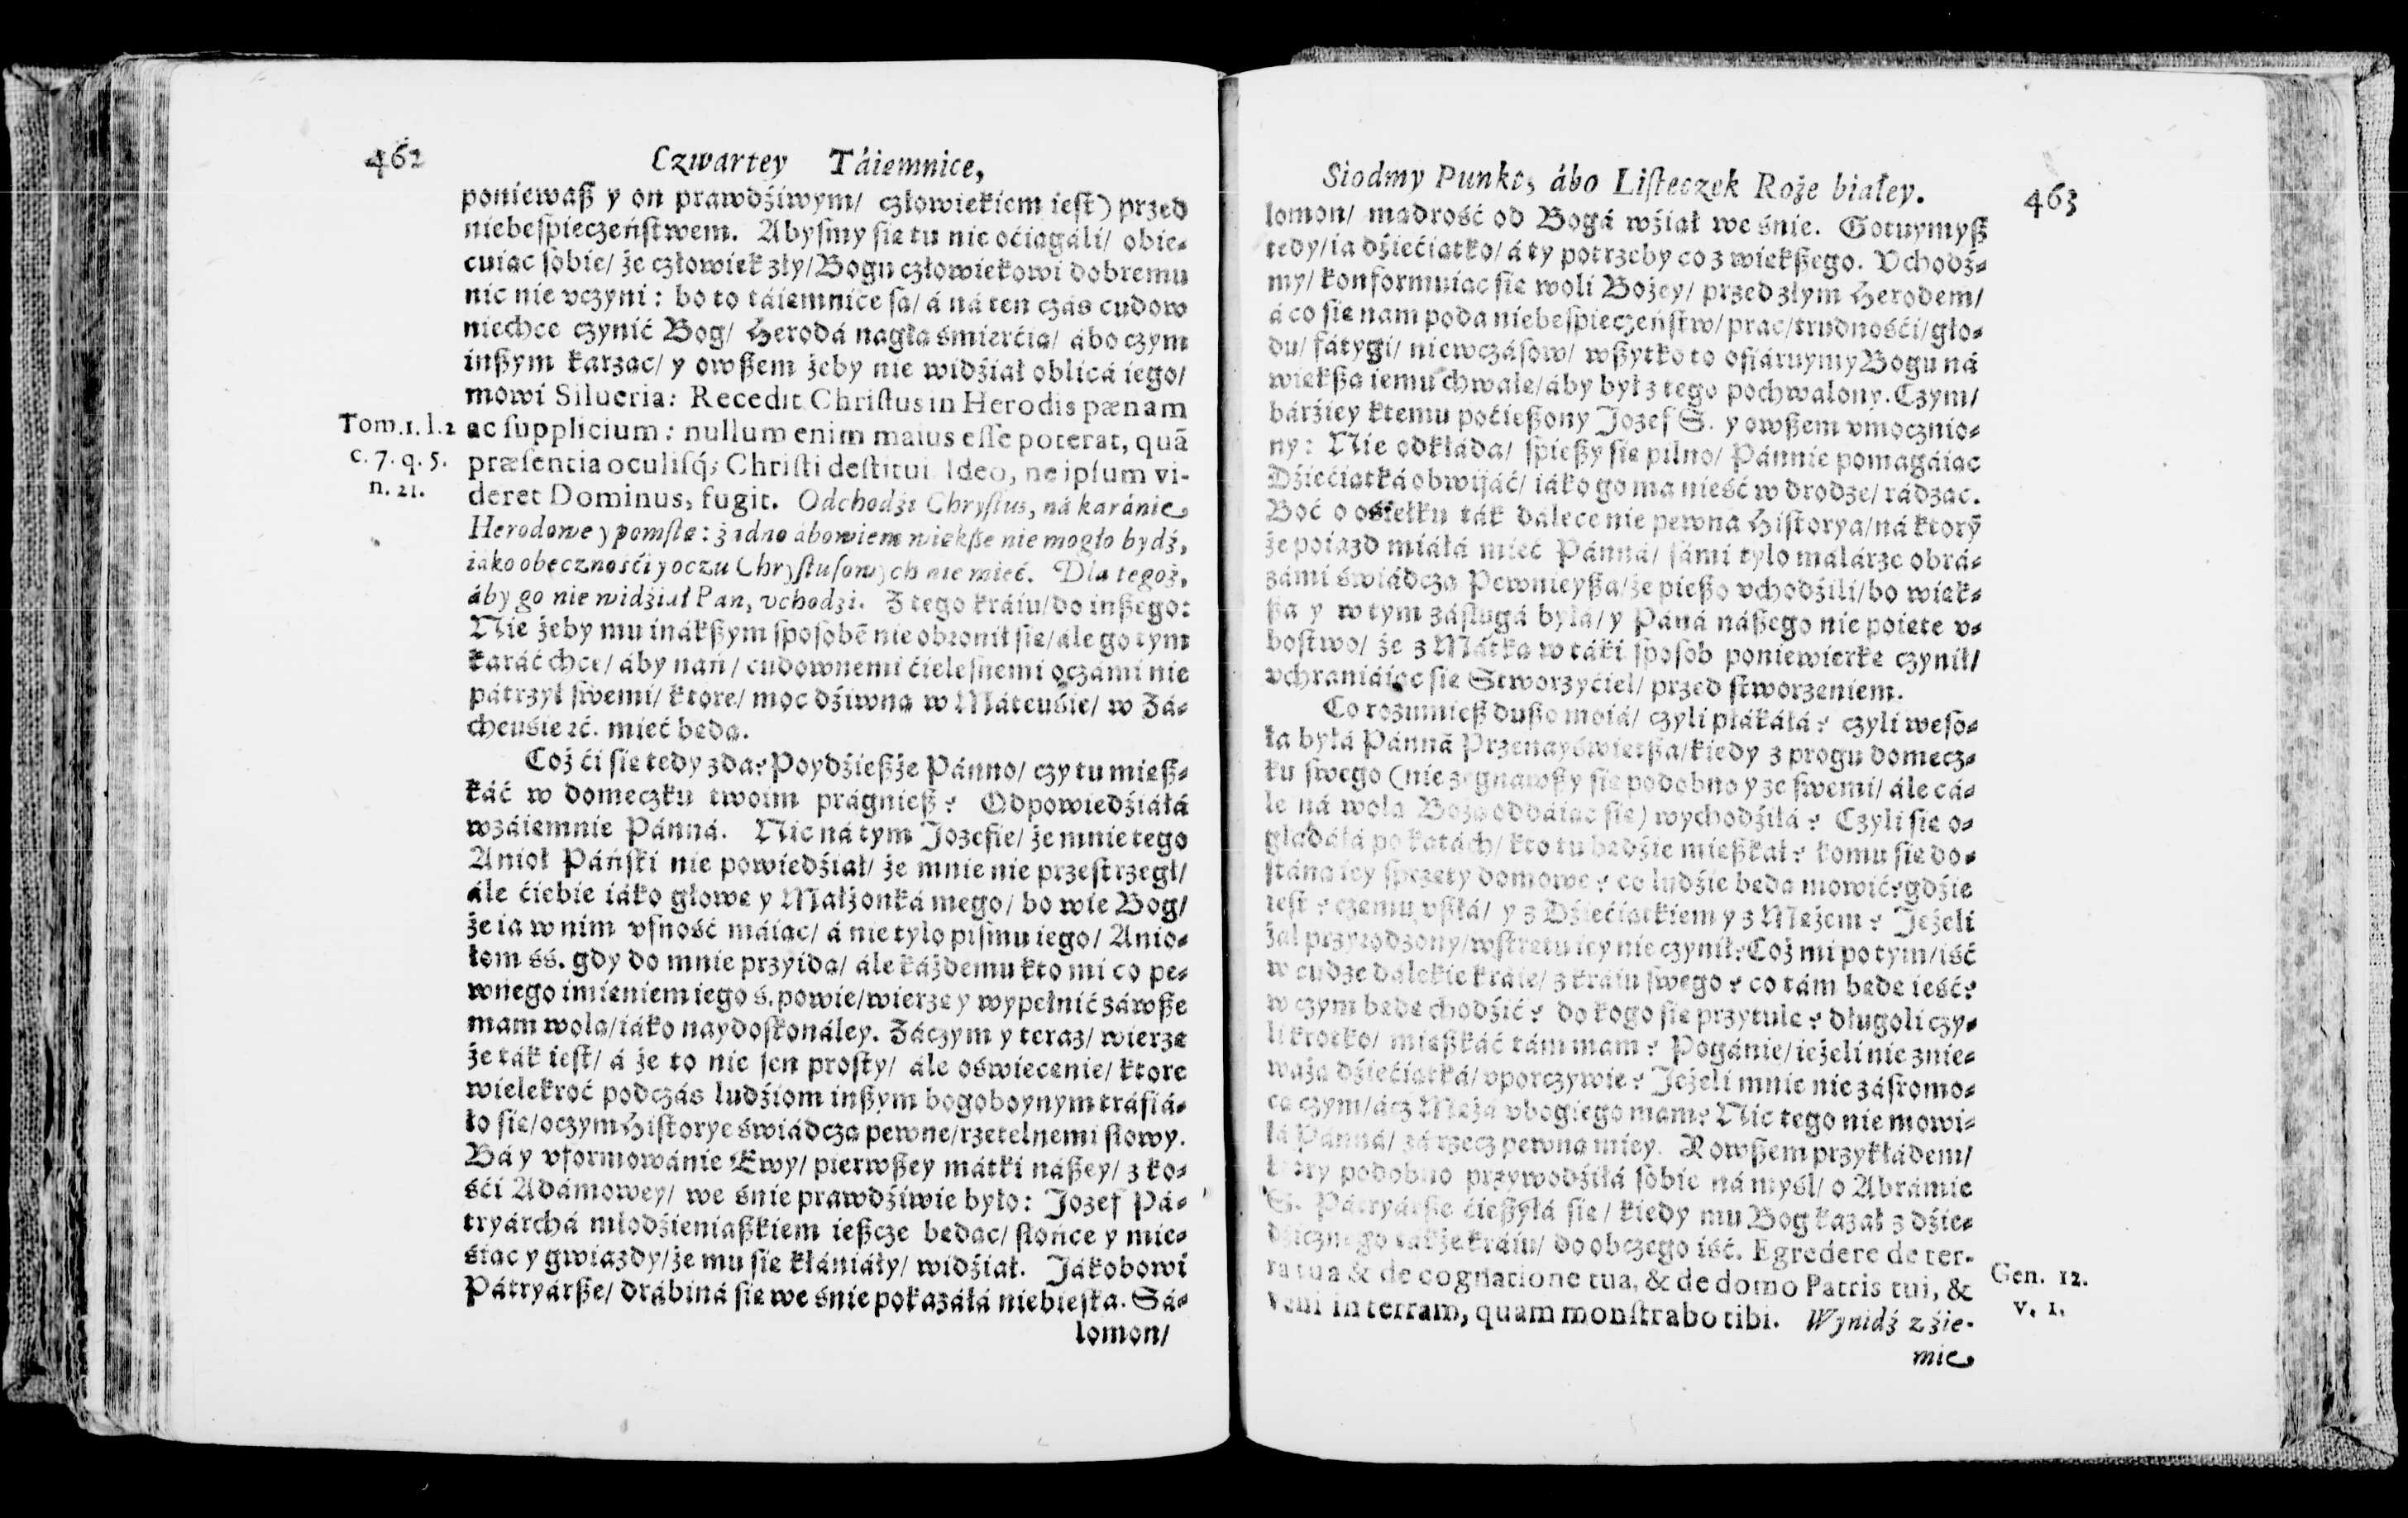 462
Czwartey Táiemnice,
poniewaß y on prawdźiwym/ człowiekiem ieſt) przed
niebeſpieczeńſtwem. Abyſmy ſię tu nie oćiągáli/ obie⸗
cuiąc ſobie/ że człowiek zły/ Bogu człowiekowi dobremu
nic nie vczyni: bo to táiemnice ſą/ á ná ten czás cudow
niechce czynić Bog/ Herodá nagłą śmierćią/ ábo czym
inßym karząc/ y owßem żeby nie widźiał oblicá iego/
mowi Silueria: Recedit Chriſtus in Herodis pænam
Tom. 1. l. 2
ac ſupplicium: nullum enim maius eſſe poterat, quã
c. 7. q. 5.
præſentia oculiſq́; Chriſti deſtitui. Ideo, ne ipſum vi-
n. 21.
deret Dominus, fugit. Odchodźi Chryſtus, ná karánie
Herodowe y pomſtę: żadno ábowiem większe nie mogło bydź,
iako obecznośći y oczu Chryſtuſowych nie mieć. Dla tegoż,
áby go nie widźiał Pan, vchodzi. Z tego kráiu/ do inßego:
Nie żeby mu inákßym ſpoſobẽ nie obronił ſię/ ále go tym
karáć chce/ áby nań/ cudownemi ćieleſnemi oczámi nie
pátrzył ſwemi/ ktore/ moc dźiwną w Máteuśie/ w Zá⸗
cheuśie ꝛć. mieć będą.
Coż ći ſię tedy zda? Poydźießże Pánno/ czy tu mieß⸗
káć w domeczku twoim prágnieß? Odpowiedźiáłá
wzáiemnie Pánná. Nic ná tym Jozefie/ że mnie tego
Anioł Páńſki nie powiedźiał/ że mnie nie przeſtrzegł/
ále ćiebie iáko głowę y Małżonká mego/ bo wie Bog/
że ia w nim vfność máiąc/ á nie tylo piſmu iego/ Anio⸗
łom śś. gdy do mnie przyidą/ ále káżdemu kto mi co pe⸗
wnego imieniem iego ś. powie/ wierzę y wypełnić záwße
mam wolą/ iáko naydoſkonáley. Záczym y teraz/ wierzę
że ták ieſt/ á że to nie ſen proſty/ ále oświecenie/ ktore
wielekroć podczás ludźiom inßym bogoboynym tráfiá⸗
ło ſię/ o czym Hiſtorye świádczą pewne/ rzetelnemi ſłowy.
Bá y vformowánie Ewy/ pierwßey mátki náßey/ z ko⸗
śći Adámowey/ we śnie prawdźiwie było: Jozef Pá⸗
tryárchá młodźieniaßkiem ießcze będąc/ ſłońce y mie⸗
śiąc y gwiazdy/ że mu ſię kłániáły/ widźiał. Jákobowi
Pátryárße/ drábiná ſię we śnie pokazáłá niebieſka. Sá⸗
lomon/
Siodmy Punkt, ábo Liſteczek Roże białey.
463
lomon/ mądrość od Bogá wźiął we śnie. Gotuymyß
tedy/ ia dźiećiątko/ á ty potrzeby co z większego. Vchodź⸗
my/ konformuiąc ſię woli Bożey/ przed złym Herodem/
á co ſię nam poda niebeſpieczeńſtw/ prac/ trudnośći/ gło⸗
du/ fátygi/ niewczáſow/ wßytko to ofiáruymy Bogu ná
większą iemu chwałę/ áby był z tego pochwalony. Czym/
bárźiey ktemu poćießony Jozef S. y owßem vmocnio⸗
ny: Nie odkłáda/ ſpießy ſię pilno/ Pánnie pomagáiąc
Dźiećiątká obwijáć/ iáko go ma nieść w drodze/ rádząc.
Boć o osiełku ták dálece nie pewna Hiſtorya/ ná ktorỹ
że poiazd miáłá mieć Pánná/ ſámi tylo malárze obrá⸗
zámi świádczą Pewnieyßa/ że pießo vchodźili/ bo więk⸗
ßa y w tym záſługá byłá/ y Páná náßego nie poięte v⸗
boſtwo/ że z Mátką w táki ſpoſob poniewierkę czynił/
vchraniáiąc ſię Stworzyćiel/ przed ſtworzeniem.
Co rozumieß dußo moiá/ czyli płákáłá? czyli weſo⸗
ła byłá Pánná Przenayświętßa/ kiedy z progu domecz⸗
ku ſwego (nie zegnawßy ſię podobno y ze ſwemi/ ále cá⸗
le ná wolą Bożą oddáiąc ſię) wychodźiłá? Czyli ſię o⸗
glądáłá po kątách/ kto tu będźie mießkał? komu ſię do⸗
ſtáną iey ſprzęty domowe? co ludźie będą mowić? gdźie
ieſt? czemu vßłá/ y z Dźiećiątkiem y z Mężem? Jeżeli
żal przyrodzony/ wſtrętu iey nie czynił? Coż mi po tym/ iść
w cudze dálekie kráie/ z kráiu ſwego? co tám będę ieść?
w czym będę chodźić? do kogo ſię przytulę? długoli czy⸗
li krotko/ mießkáć tám mam? Pogánie/ ieżeli nie znie⸗
ważą dźiećiątká/ vporczywie? Jeżeli mnie nie záſromo⸗
cą czym/ ácz Mężá vbogiego mam? Nic tego nie mowi⸗
łá Pánná/ zá rzecz pewną miey. Y owßem przykłádem/
ktory podobno przywodźiłá ſobie ná myśl/ o Abrámie
S. Pátryárße ćießyłá ſię/ kiedy mu Bog kazał z dźie⸗
dźicznego tákże kráiu/ do obczego iść. Egredere de ter-
ra tua & de cognatione tua, & de domo Patris tui, &
Gen. 12.
veni in terram, quam monſtrabo tibi. Wynidź z źie-
v. 1.
mie